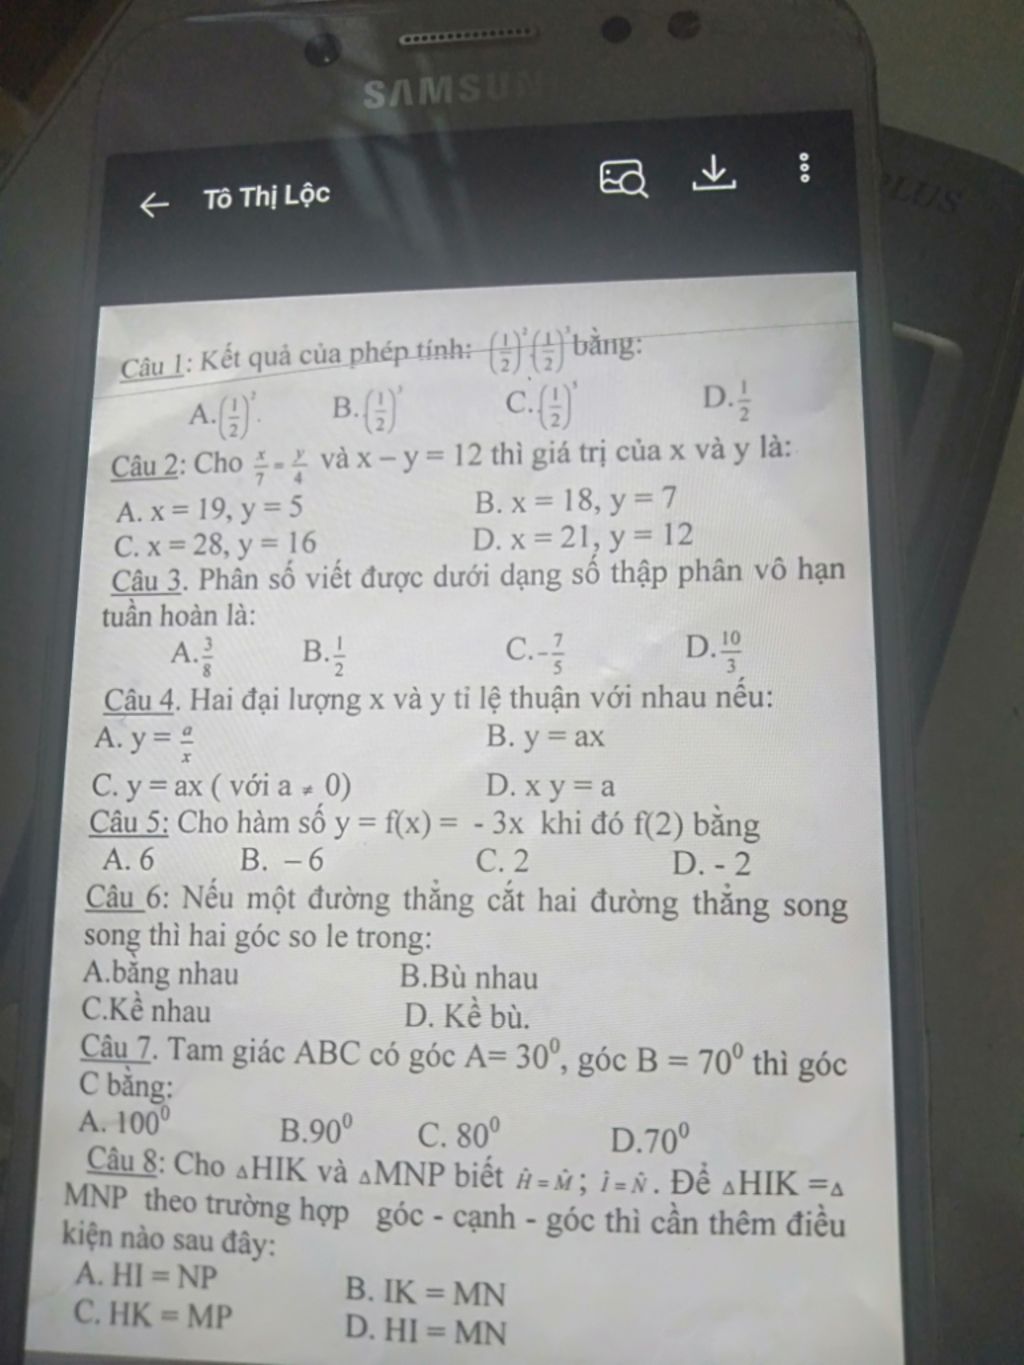 SAMSUN
PLUS
Tô Thị Lộc
Câu 1: Kết quả của phép tính: (1/2)² (1/2)³ bằng:
A.(1/2)². B.(1/2)³ C.(1/2)⁵ D.1/2
Câu 2: Cho x/7 = y/4 và x – y = 12 thì giá trị của x và y là:
A. x = 19, y = 5 B. x = 18, y = 7
C. x = 28, y = 16 D. x = 21, y = 12
Câu 3. Phân số viết được dưới dạng số thập phân vô hạn
tuần hoàn là:
A.3/8 B.1/2 C.-7/5 D.10/3
Câu 4. Hai đại lượng x và y tỉ lệ thuận với nhau nếu:
A. y = a/x B. y = ax
C. y = ax ( với a ≠ 0) D. x y = a
Câu 5: Cho hàm số y = f(x) = - 3x khi đó f(2) bằng
A. 6 B. – 6 C. 2 D. - 2
Câu 6: Nếu một đường thẳng cắt hai đường thẳng song
song thì hai góc so le trong:
A.bằng nhau B.Bù nhau
C.Kề nhau D. Kề bù.
Câu 7. Tam giác ABC có góc A= 30⁰, góc B = 70⁰ thì góc
C bằng:
A. 100⁰ B.90⁰ C. 80⁰ D.70⁰
Câu 8: Cho ΔHIK và ΔMNP biết Ĥ = M̂ ; Î = N̂ . Để ΔHIK =Δ
MNP theo trường hợp góc - cạnh - góc thì cần thêm điều
kiện nào sau đây:
A. HI = NP B. IK = MN
C. HK = MP D. HI = MN